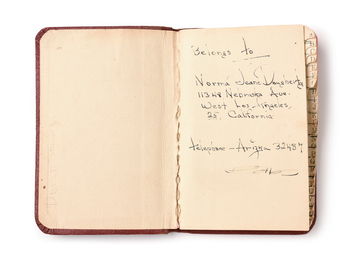 Belongs to
Norma Jeane Dougherty
11348 Nebraska Ave.
West Los-Angeles,
25, California
telephone - Arizna 32487